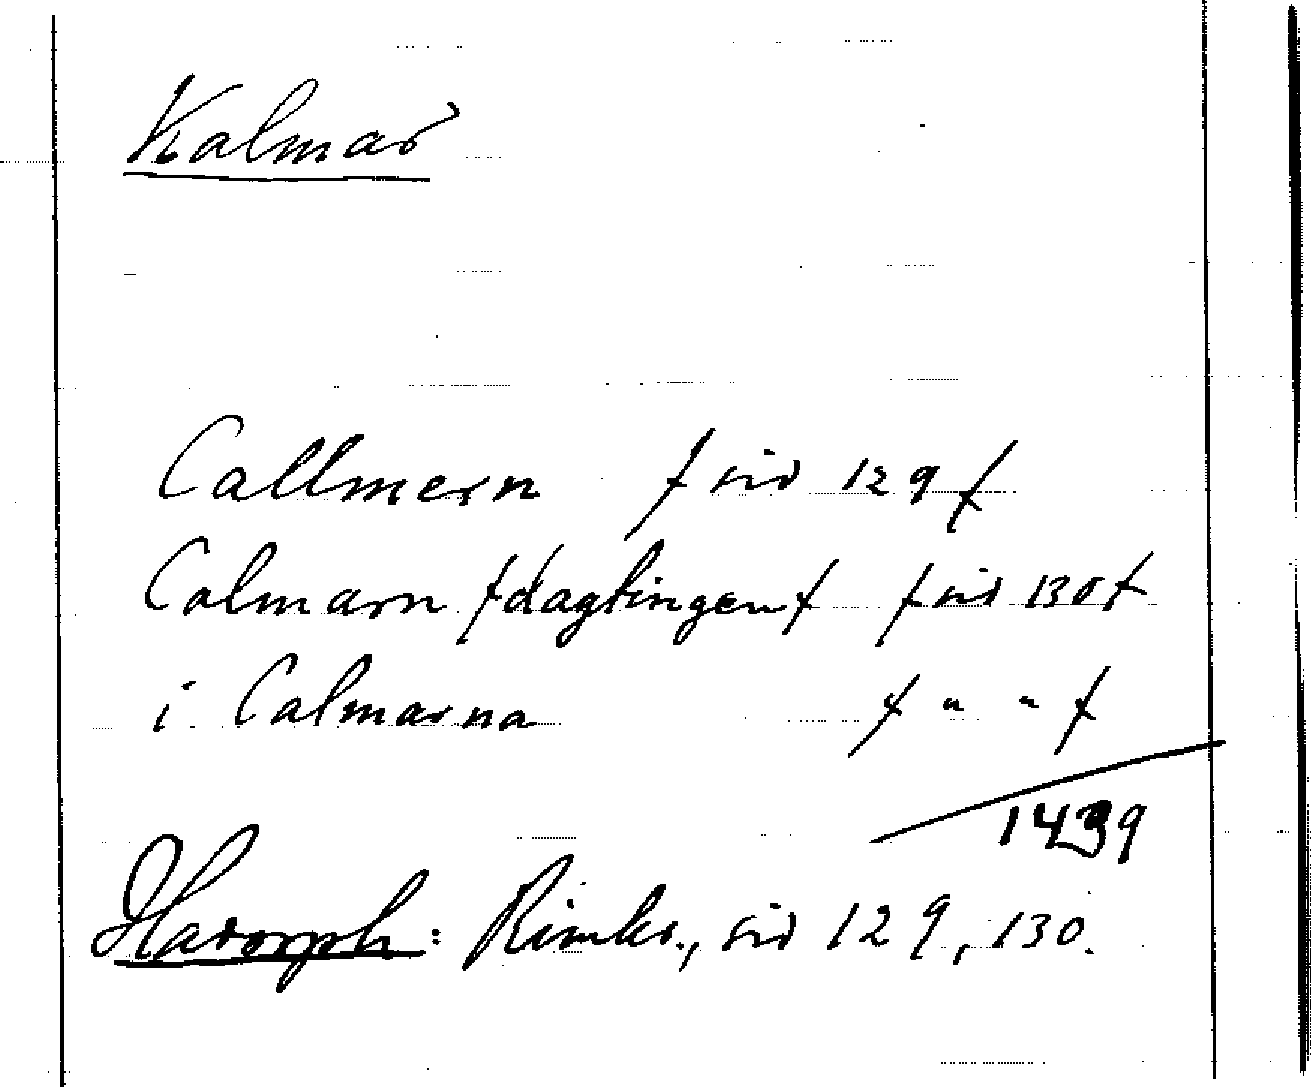 Kalmar
Callmern / sid 129 /
Colmarn /daghtingen/ / sid 130 /
i Calmarna / " " /
1439
Hadorph: Rimkr., sid 129, 130.